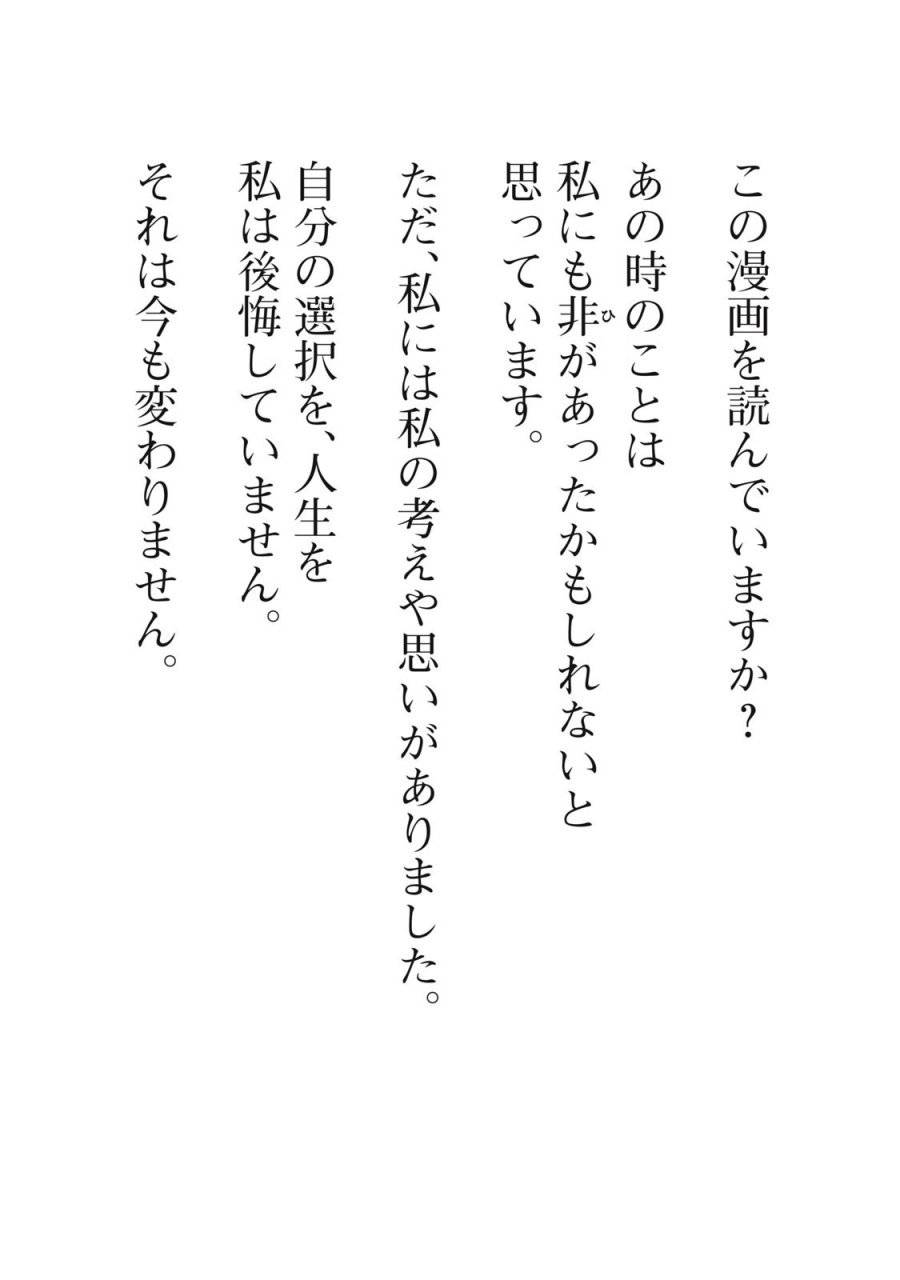 この漫画を読んでいますか？
あの時のことは
私にも非があったかもしれないと
思っています。
ただ、私には私の考えや思いがありました。
自分の選択を、人生を
私は後悔していません。
それは今も変わりません。